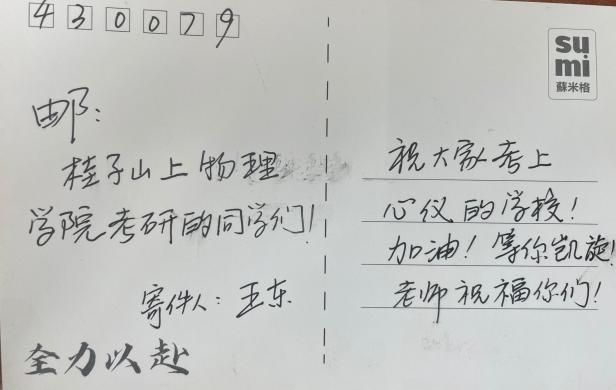 430079
邮:
桂子山上物理
学院考研的同学们!
寄件人: 王东
全力以赴
su
mi
蘇米格
祝大家考上
心仪的学校!
加油! 等你凯旋!
老师祝福你们!